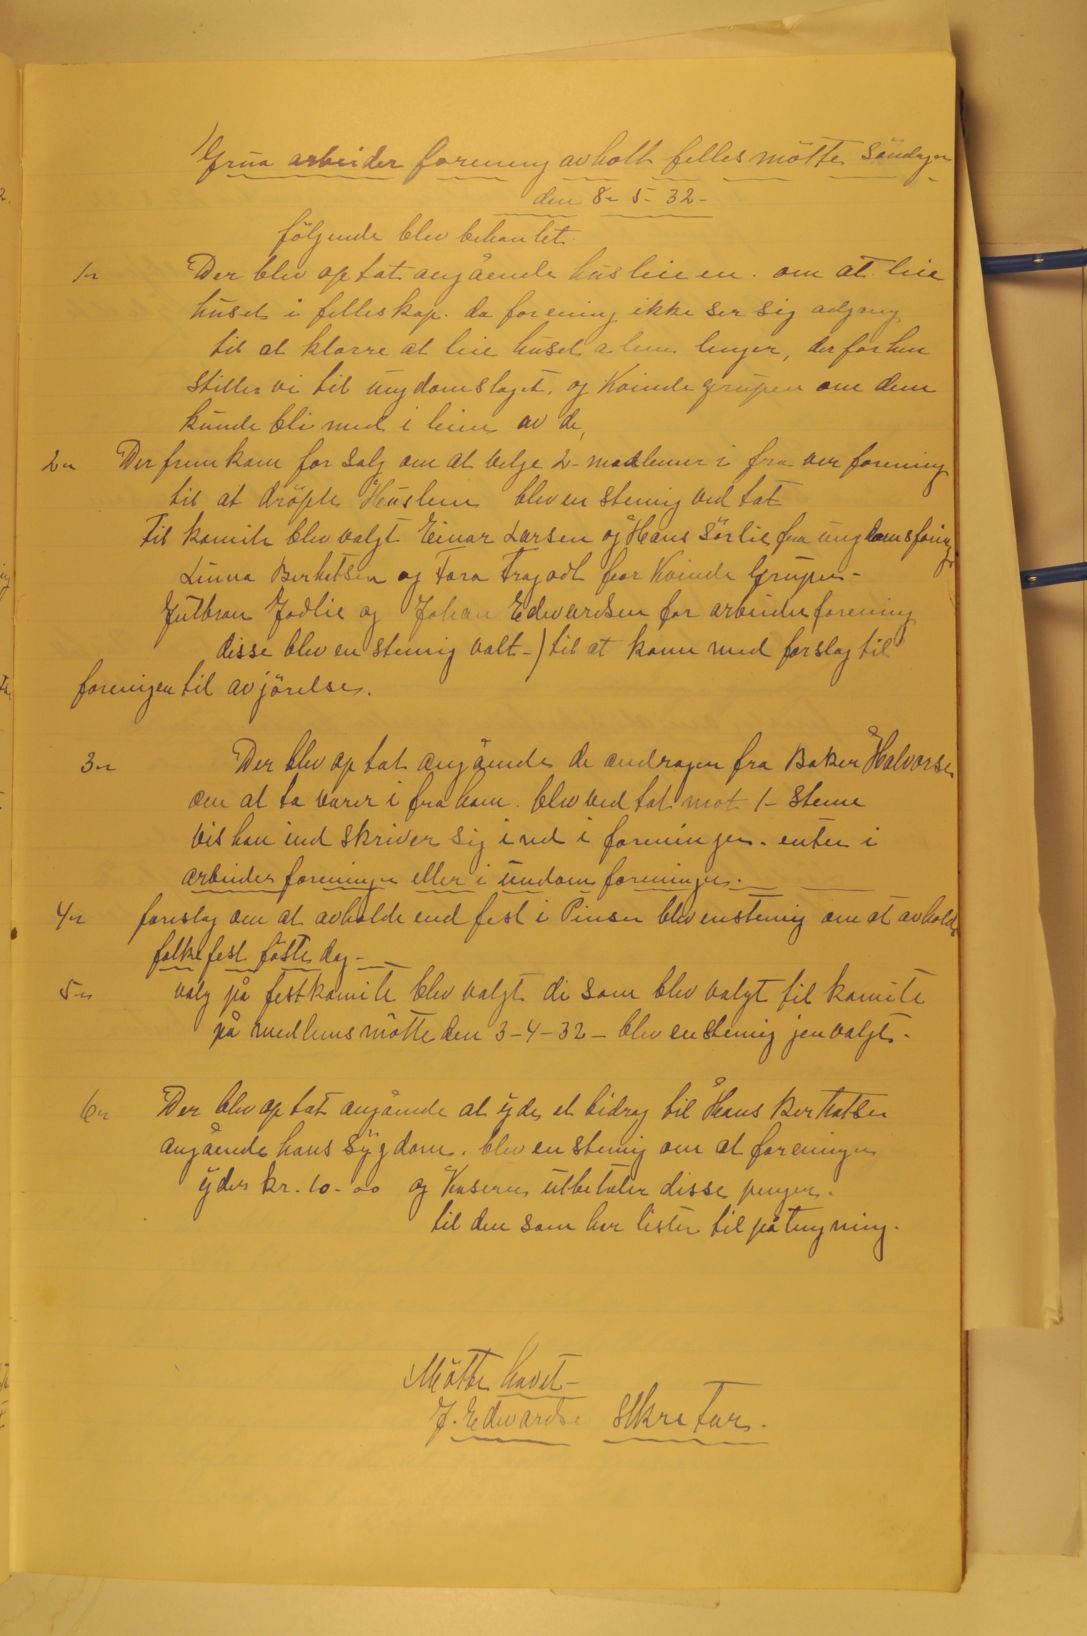 Grua arbeider forening avholt felles mötte Söndagen
den 8- 5- 32-
fölgende blev behanlet.
1- Der blev optat angående husleien. om at leie
huset i felleskap. da forening ikke ser sig adgang
til at klarre at leie huset alene lenger, derfor hen
stiller vi til ungdomslaget. og Kvinde grupen om dem
kunde bli med i leien av de,
2- Der frem kom for salg om at velge 2- medlemer i fra ver forening
til at dröfte Husleien blev en stemig ved tat
Til komite blev valgt Einar Larsen og Hans Sörlie fra ungdomsforing
Linna Berhetsen og Tora Fragodt for Kvinde Grupen-
Gulbran Jodlie og Johan Edwardsen for arbeider forening
disse blev en stemig valt-) til at komme med forslag til
foreningen til avjörelse.
3- Der blev op tat angående de andragen fra Baker Halvorsen
om at ta varer i fra ham. blev ved tat mot 1- steme
vis han ind skriver sig ind i foreningen. enten i
arbeider foreningen eller i undom foreningen.
4- forslag om at avholde end fest i Pinsen blev enstemig om at avholde
folkefest förste dag-
5- valg på festkomite blev valgt di som blev valgt til komite
på medlemsmötte den 3-4-32- blev enstemig jenvalgt.
6- Der blev op tat angående at yde et bidrag til Hans Berhatsen
angående hans sygdom. blev en stemig om at foreningen
yder kr. 10-00 og Kaseren utbetaler disse penger.
til den som har listen til på tegning.
Mötte hevet-
J. Edwardse Sekretær.